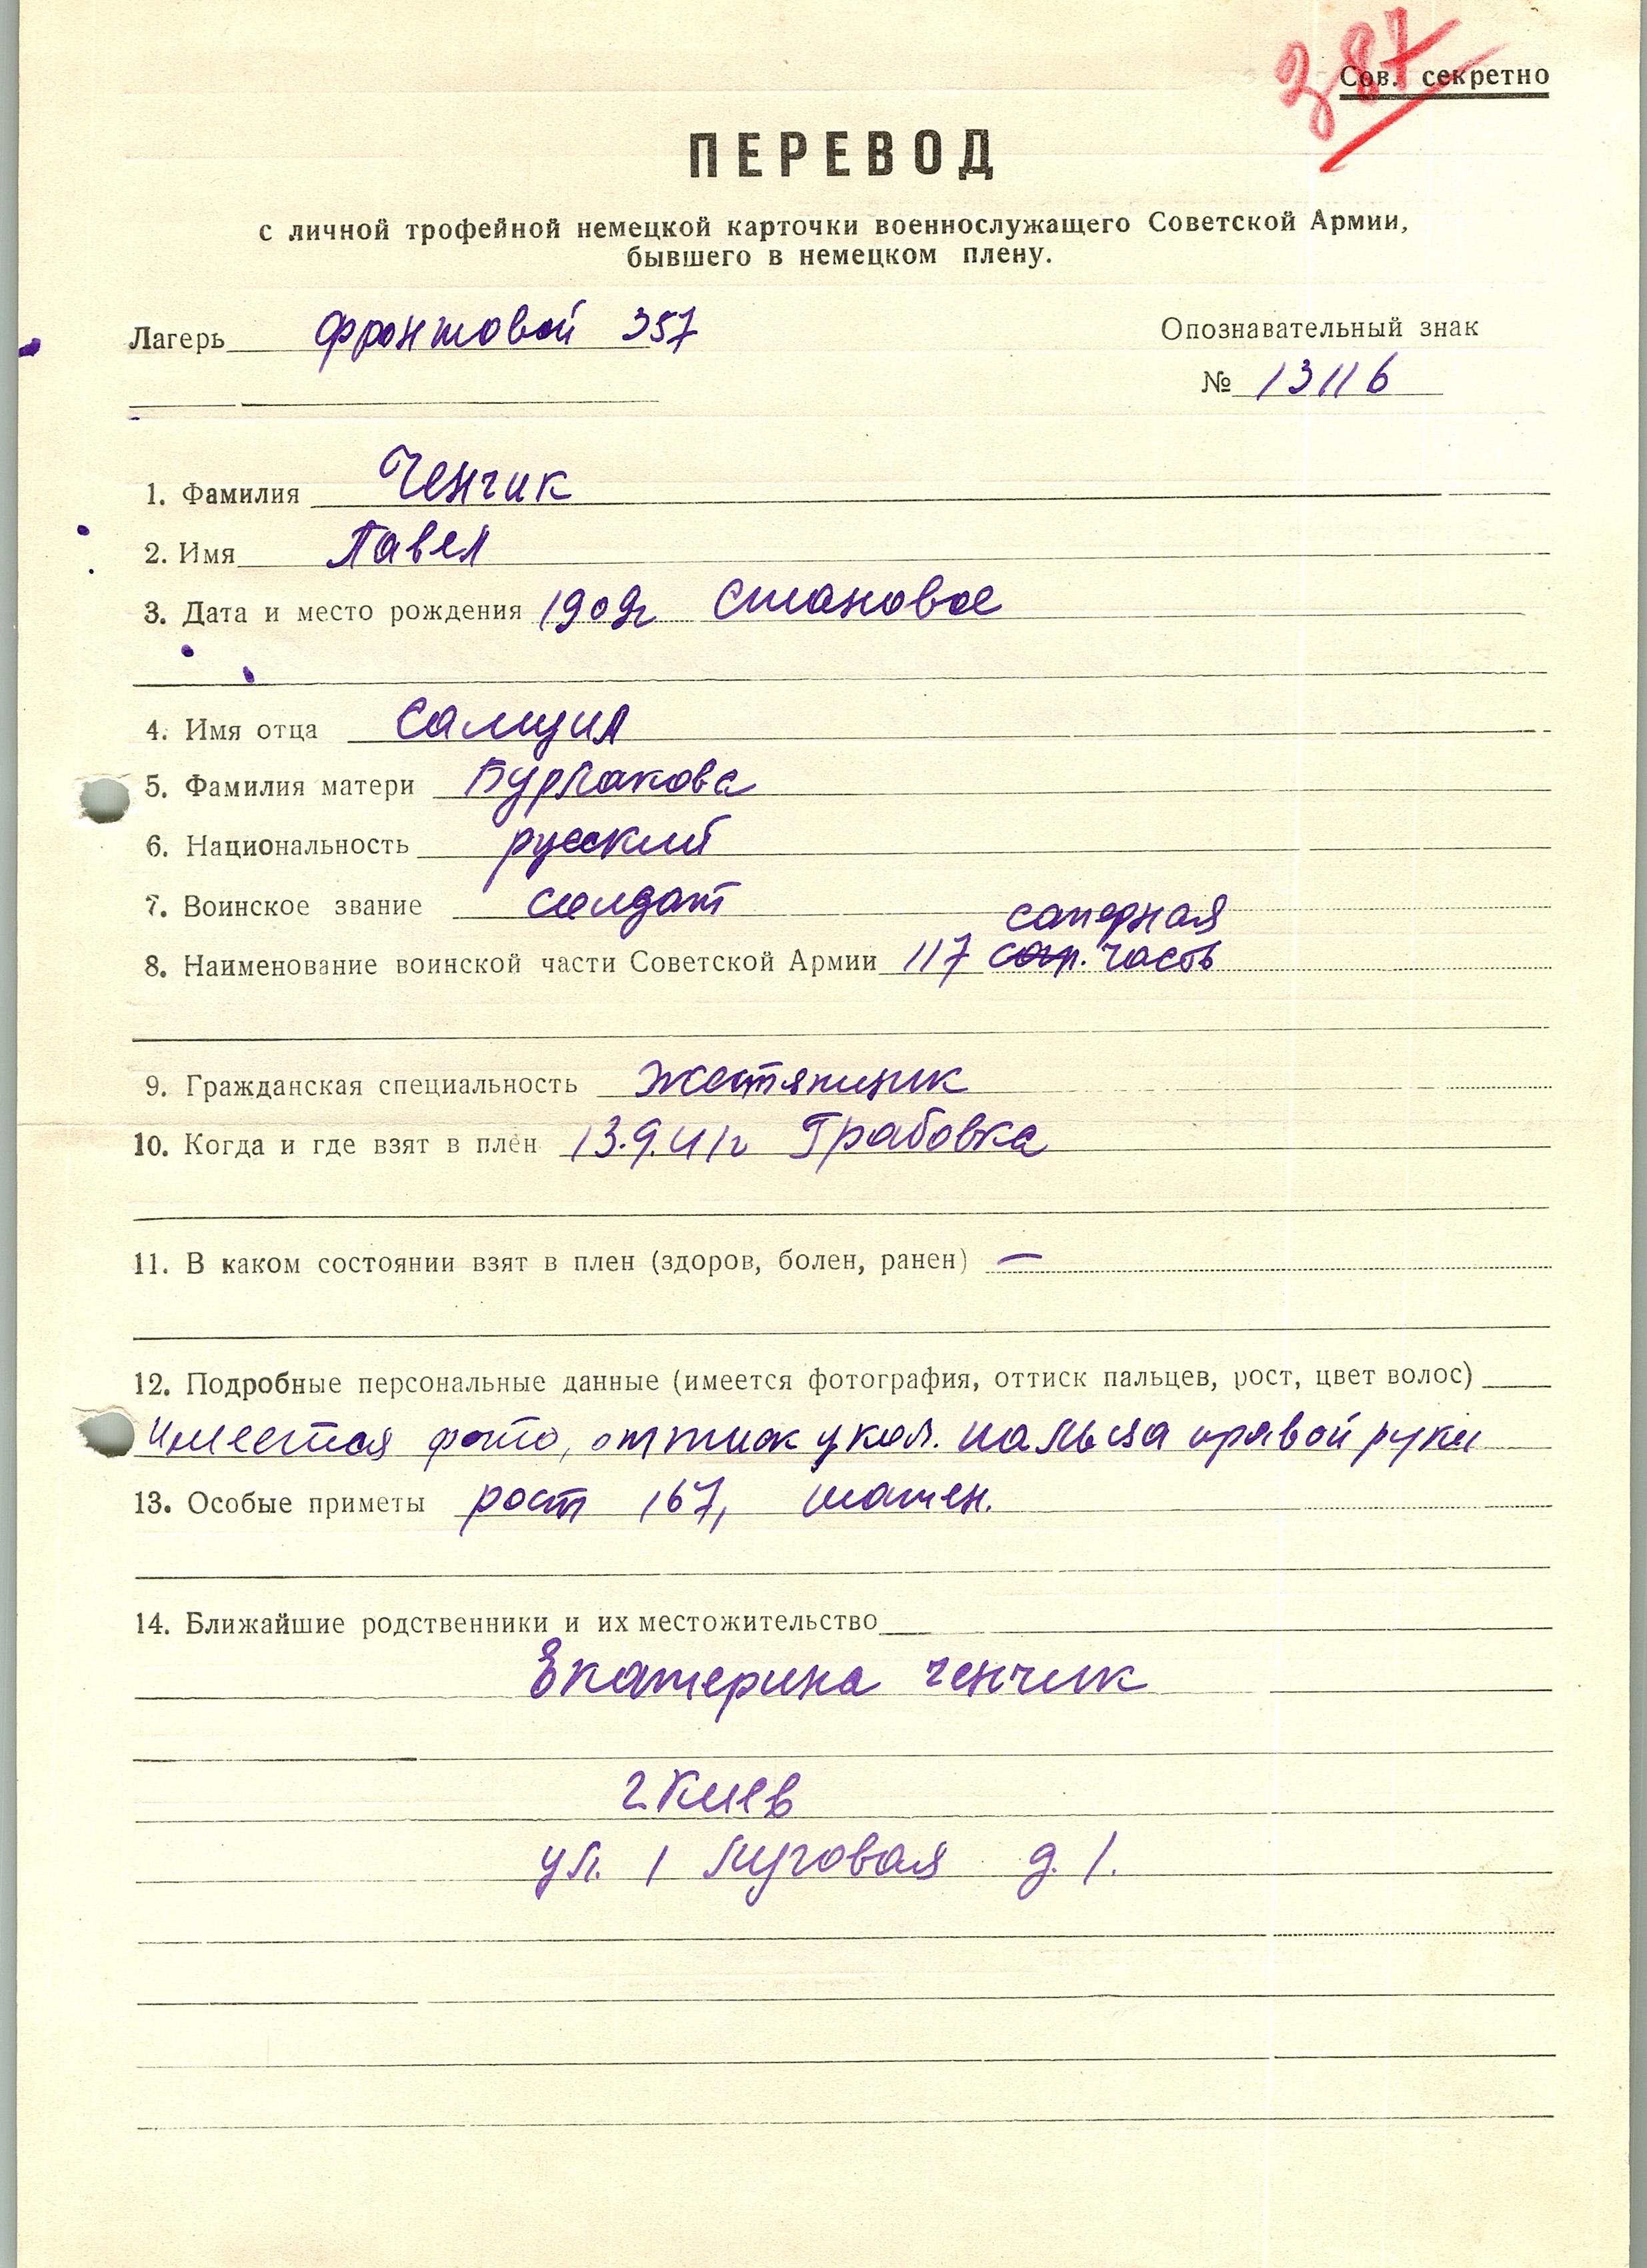 387
Сов. секретно
ПЕРЕВОД
с личной трофейной немецкой карточки военнослужащего Советской Армии,
бывшего в немецком плену.
Лагерь фронтовой 357
Опознавательный знак
№ 13116
1. Фамилия Ченчик
2. Имя Павел
3. Дата и место рождения 1909г Становое
4. Имя отца Самуил
5. Фамилия матери Бурлакова
6. Национальность русский
7. Воинское звание солдат
саперная
8. Наименование воинской части Советской Армии 117 сап. часть
9. Гражданская специальность жестянщик
10. Когда и где взят в плен 13.9.41г Грабовка
11. В каком состоянии взят в плен (здоров, болен, ранен) —
12. Подробные персональные данные (имеется фотография, оттиск пальцев, рост, цвет волос)
Имеется фото, оттиск указ. пальца правой руки
13. Особые приметы рост 167, шатен.
14. Ближайшие родственники и их местожительство
Екатерина Ченчик
г. Киев
ул. 1 Луговая д. 1.